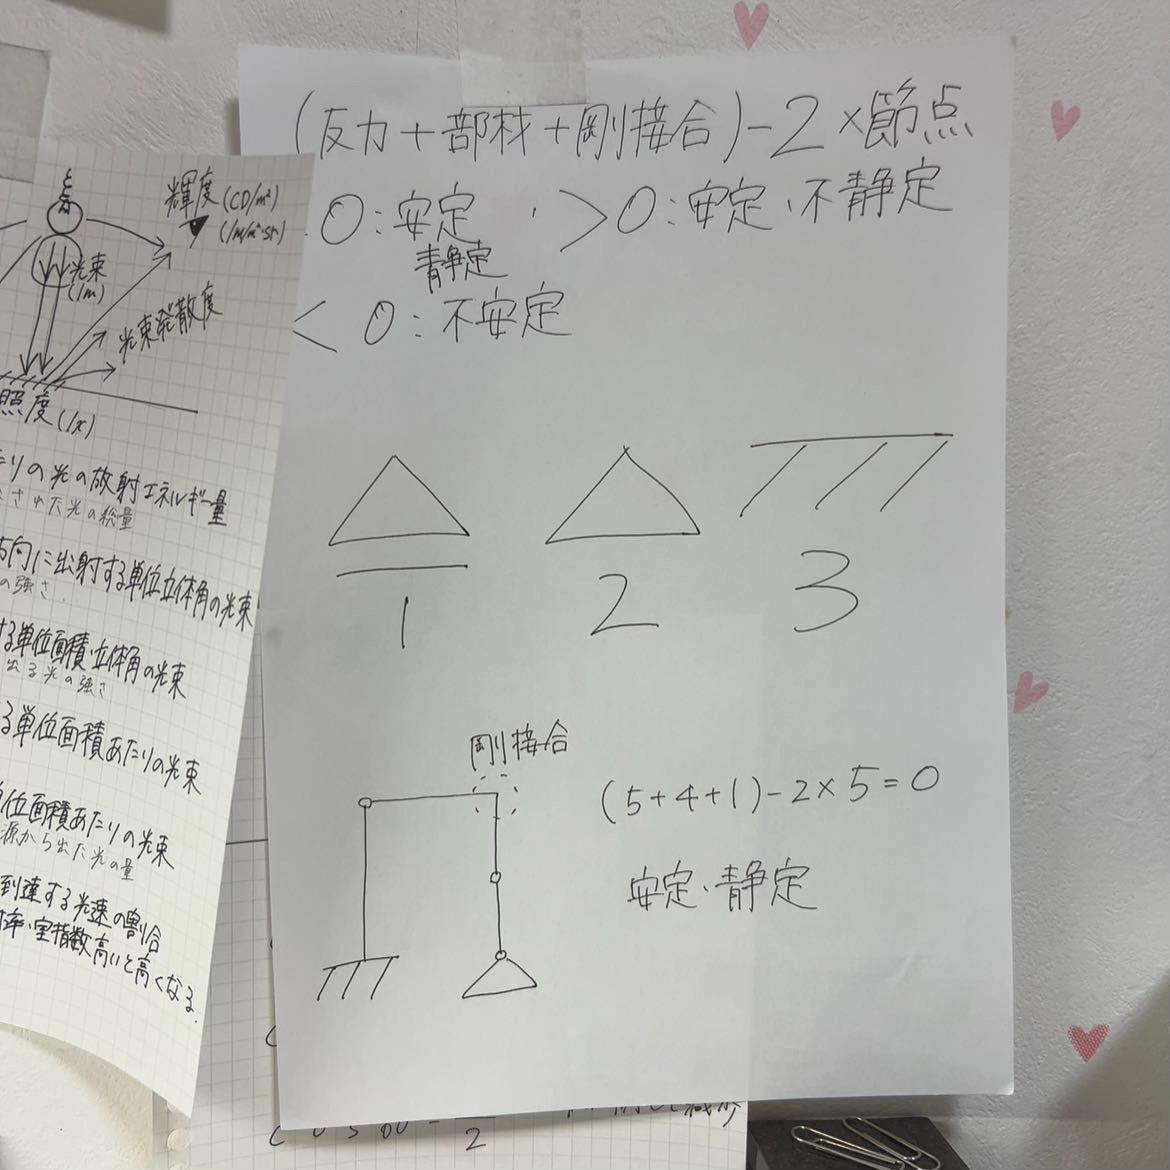 (反力+部材+剛接合)-2×節点
0:安定 ・ >0:安定・不静定
静定
< 0:不安定
1
2
3
剛接合
(5+4+1)-2×5=0
安定・静定
輝度(CD/m²)
(lm/m²・sr)
光束
(lm)
光束発散度
照度(lx)
たりの光の放射エネルギー量
された光の総量
方向に出射する単位立体角の光束
の強さ
する単位面積・立体角の光束
出る光の強さ
る単位面積あたりの光束
単位面積あたりの光束
源から出た光の量
到達する光速の割合
室指数高いと高くなる.
2